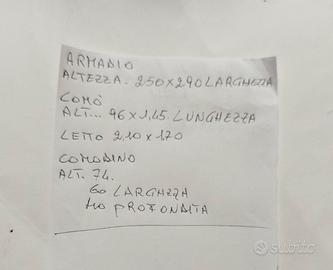 ARMADIO
ALTEZZA. 250×290 LARGHEZZA
COMÒ
ALT... 96×1,45. LUNGHEZZA
LETTO 2,10×170
COMODINO
ALT. 74.
60 LARGHEZZA
40 PROFONDITA
subito